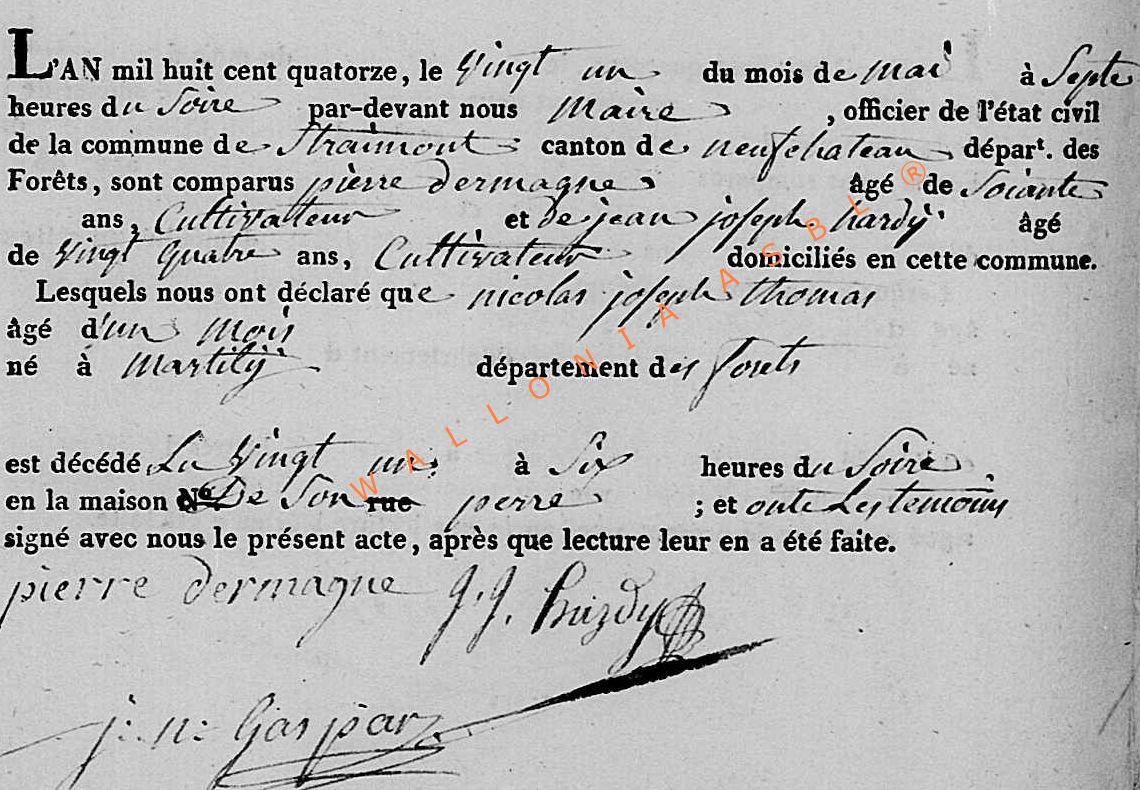 L'AN mil huit cent quatorze, le Vingt un du mois de mai à Septe
heures du Soire par-devant nous Maire , officier de l'état civil
de la commune de Straimont canton de neufchateau dépar<sup>t</sup>. des
Forêts, sont comparus pierre dermagne âgé de Soiante
ans, Cultivateur et de jean joseph hardÿ âgé
de Vingt Quatre ans, Cultivateur domiciliés en cette commune.
Lesquels nous ont déclaré que nicolas joseph thomas
âgé d'un Mois
né à Martilÿ département des forets
est décédé Le Vingt un à Six heures du Soire
en la maison N° De Son rue perre ; et onte Les temoins
signé avec nous le présent acte, après que lecture leur en a été faite.
pierre dermagne j. j. hardy
j: n: Gaspar
WALLONIA ASBL®